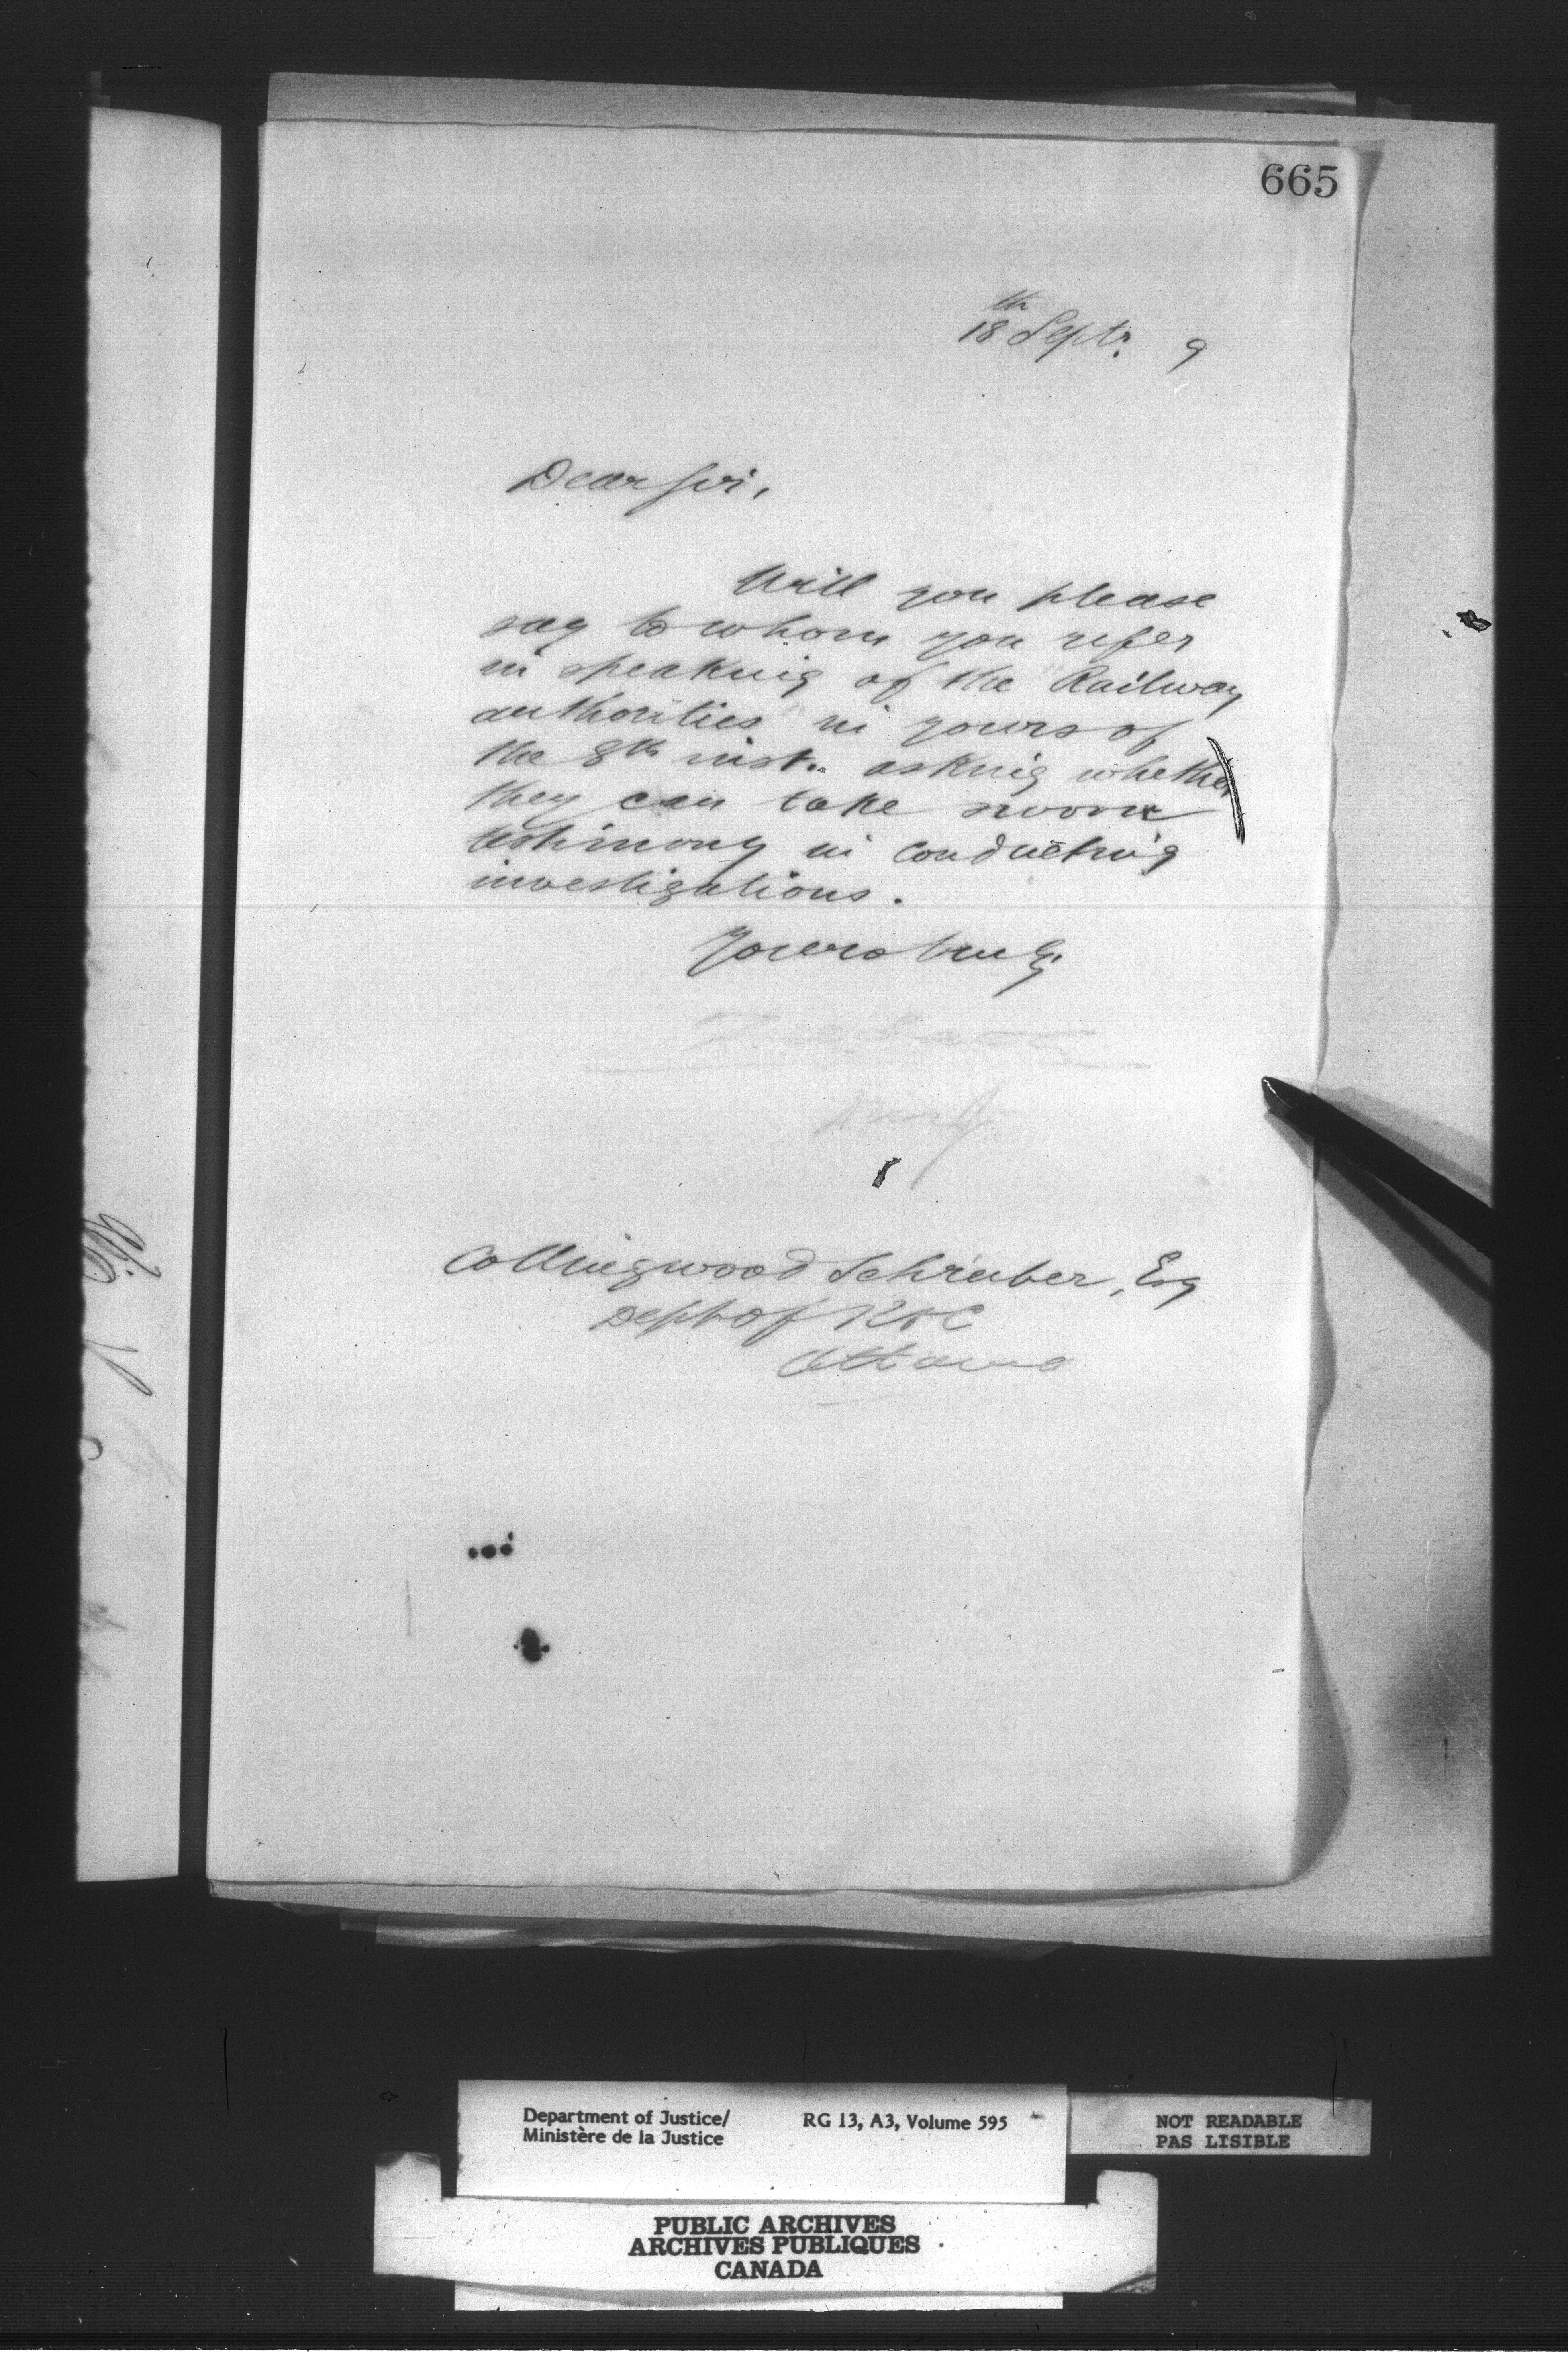 665
18th Septr. 9
Dear Sir,
Will you please
say to whom you refer
in speaking of the "Railway
authorities" in yours of
the 8th inst. asking whether
they can take sworn
testimony in conducting
investigations.
Yours truly,
Collingwood Schreiber, Esq
Dept of R & C
Ottawa
Department of Justice/
Ministère de la Justice
RG 13, A3, Volume 595
NOT READABLE
PAS LISIBLE
PUBLIC ARCHIVES
ARCHIVES PUBLIQUES
CANADA